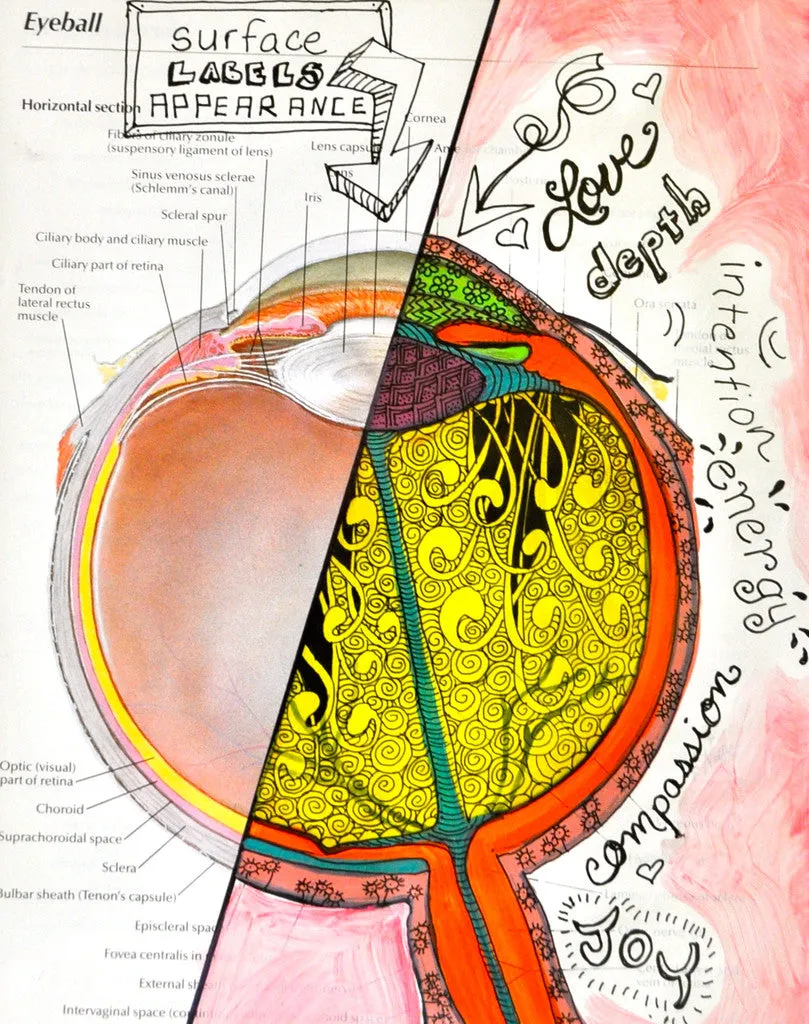 Eyeball
surface
LABELS
APPEARANCE
Horizontal section
Cornea
Fibers of ciliary zonule
(suspensory ligament of lens)
Lens capsule
Sinus venosus sclerae
(Schlemm's canal)
Scleral spur
Iris
Ciliary body and ciliary muscle
Ciliary part of retina
Tendon of
lateral rectus
muscle
Love
depth
intention
Ora serrata
energy
compassion
JOY
Optic (visual)
part of retina
Choroid
Suprachoroidal space
Sclera
Bulbar sheath (Tenon's capsule)
Episcleral spac
Fovea centralis in
External sh
Intervaginal space